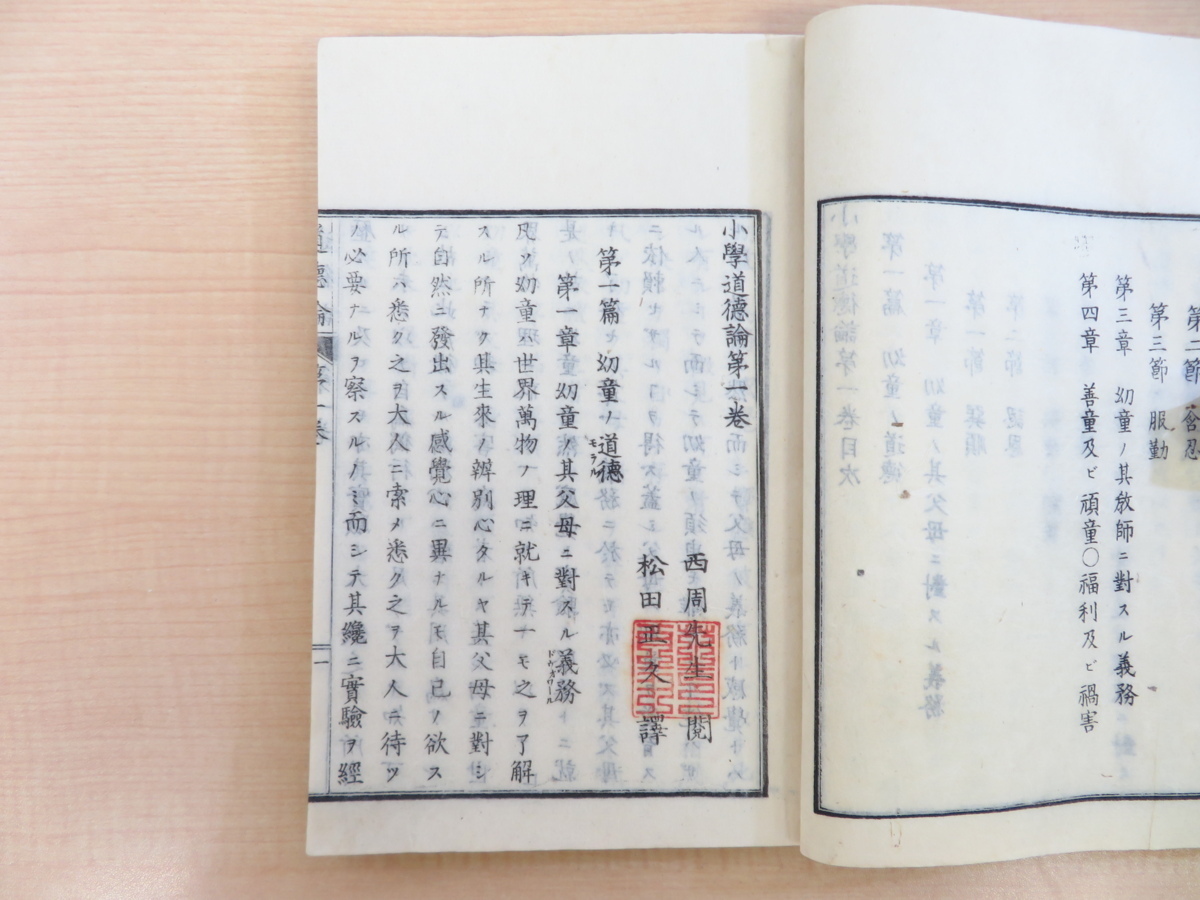 第二節
第三節 服勤
第三章 幼童ノ其敎師ニ對スル義務
第四章 善童及ビ頑童〇福利及ビ禍害
小學道德論第一卷
西周先生 閱
松田正久 譯
第一篇 幼童ノ道德
モラル
第一章 幼童ノ其父母ニ對スル義務
ドゥオワール
凡ソ幼童ハ世界萬物ノ理ニ就キテ一モ之ヲ了解
スル所ナク其生來ノ辨別心タルヤ其父母ニ對シ
テ自然ニ發出スル感覺心ニ異ナルモ自己ノ欲ス
ル所ハ悉ク之ヲ大人ニ索メ悉ク之ヲ大人ニ待ツ
ノ必要ナルヲ察スルノミ而シテ其纔ニ實驗ヲ經
道德論 第一卷 一